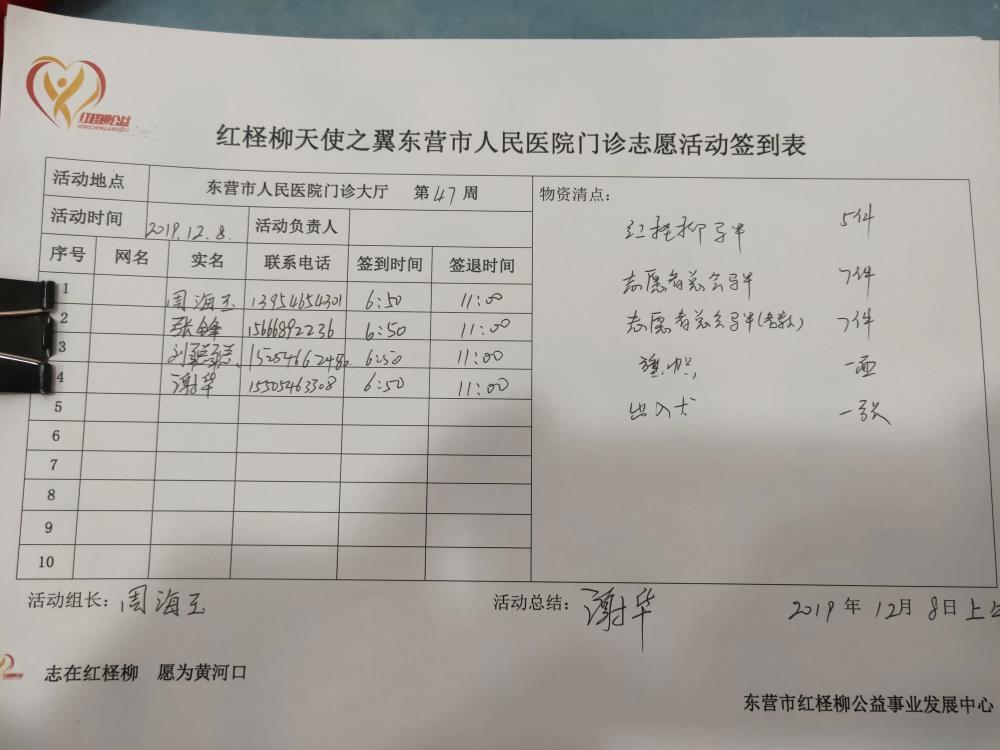 红柽柳公益
红柽柳天使之翼东营市人民医院门诊志愿活动签到表
活动地点 东营市人民医院门诊大厅 第47周
活动时间 2019.12.8. 活动负责人
序号 网名 实名 联系电话 签到时间 签退时间
1 周海玉 13954654301 6:50 11:00
2 张锋 15666892236 6:50 11:00
3 刘 6:50 11:00
4 谢华 15505463308 6:50 11:00
5
6
7
8
9
10
物资清点：
红柽柳马甲 5件
志愿者总会马甲 7件
志愿者总会马甲(冬款) 7件
旗帜 一面
一张
活动组长：周海玉
活动总结：谢华
2019年12月8日上午
志在红柽柳 愿为黄河口
东营市红柽柳公益事业发展中心